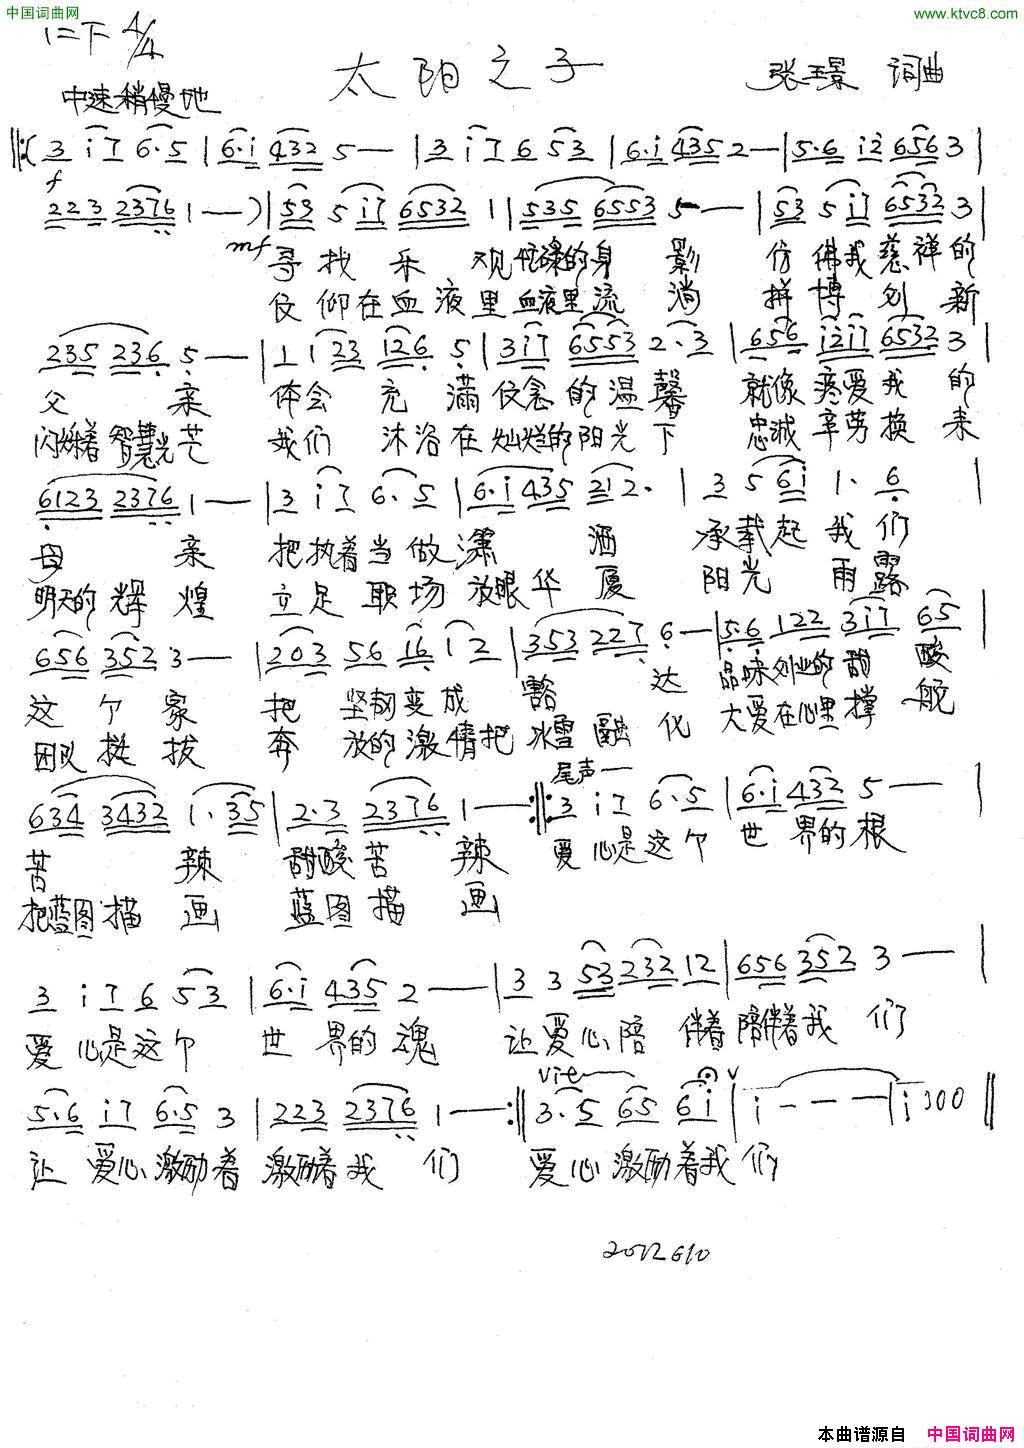 中国词曲网
www.ktvc8.com
1=下 4/4
太阳之子
张玉景 词曲
中速稍慢地
‖:( 3 i 7 6·5 | 6·i 432 5 — | 3 i 7 6 53 | 6·i 435 2 — | 5·6 i2 656 3 |
f
223 2376 1 — — ) | 53 5 i7 6532 1 | 535 6553 5 — — | 53 5 i7 6532 3 |
mf
寻找乐观忙碌的身影 仿佛我慈祥的
仰在血液里血液里流淌 拼博创新
235 236 5 — — | 1 1 23 126 5 | 3i7 6553 2·3 | 656 i2i7 6532 3 |
父亲 体会充满信念的温馨 就像疼爱我的
闪烁着智慧光芒 我们沐浴在灿烂的阳光下 忠诚辛劳换来
6123 2376 1 — — | 3 i 7 6·5 | 6·i 435 212· | 3 5 6i 1· 6 |
母亲 把执着当做潇洒 承载起我们
明天的辉煌 立足职场放眼华厦 阳光雨露
656 352 3 — — | 203 56 16 12 | 353 227 6 — | 5·6 122 3i7 65 |
这个家 把坚韧变成豁达 品味创业的甜酸
团队挺拔 奔放的激情把冰雪融化 大爱在心里撑舵
尾声
634 3432 1·35 | 2·3 2376 1 — — :‖: 3 i 7 6·5 | 6·i 432 5 — — |
苦辣 甜酸苦辣 爱心是这个世界的根
把蓝图描画 蓝图描画
3 i 7 6 53 | 6·i 435 2 — — | 3 3 53 232 12 | 656 352 3 — — |
爱心是这个世界的魂 让爱心陪伴着陪伴着我们
vit
5·6 i7 6·5 3 | 223 2376 1 — — :‖ 3·5 65 6i | i — — — | i 300 ‖
让爱心激励着激励着我们 爱心激励着我们
2012 6 10
本曲谱源自 中国词曲网